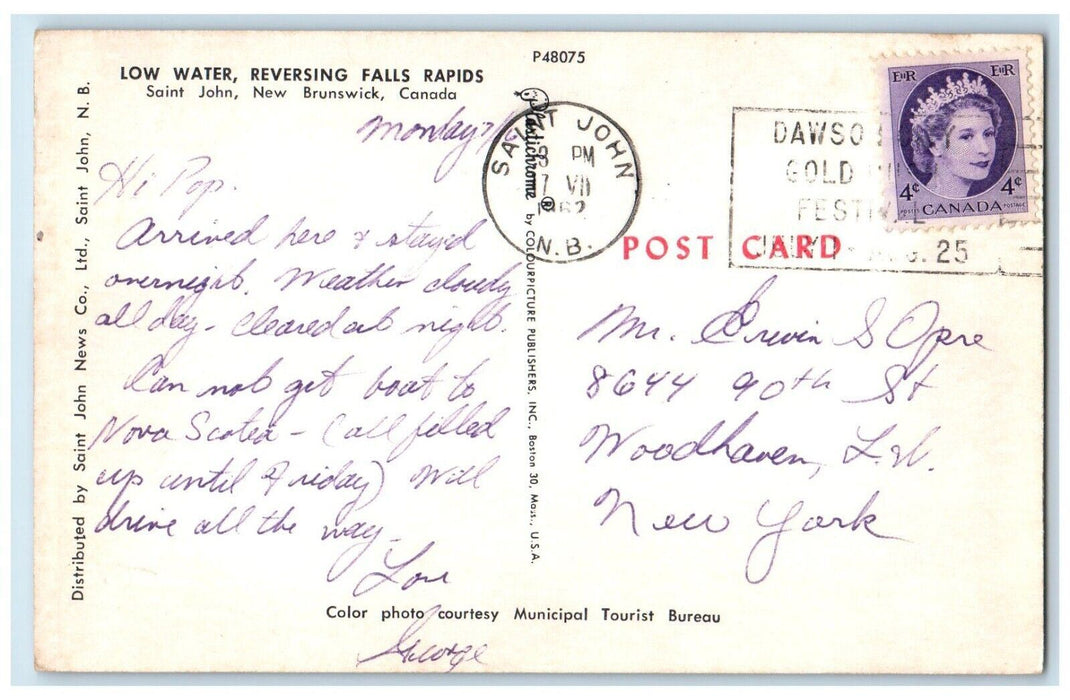 P48075
LOW WATER, REVERSING FALLS RAPIDS
Saint John, New Brunswick, Canada
Monday
Hi Pop.
Arrived here & stayd
overnight. Weather cloudy
all day - cleared at night.
Can not get boat to
Nova Scotea - (all filled
up until Friday) Will
drive all the way.
Love
George
Distributed by Saint John News Co., Ltd., Saint John, N. B.
Plastichrome ® by COLOURPICTURE PUBLISHERS, INC., Boston 30, Mass., U.S.A.
Color photo courtesy Municipal Tourist Bureau
SAINT JOHN
8 PM
7 VII
1962
N.B.
DAWSO
GOLD
FESTI
25
EIIR EIIR
4¢ 4¢
POSTES CANADA POSTAGE
POST CARD
Mr. Erwin S Opre
8644 90th St
Woodhaven,
New York